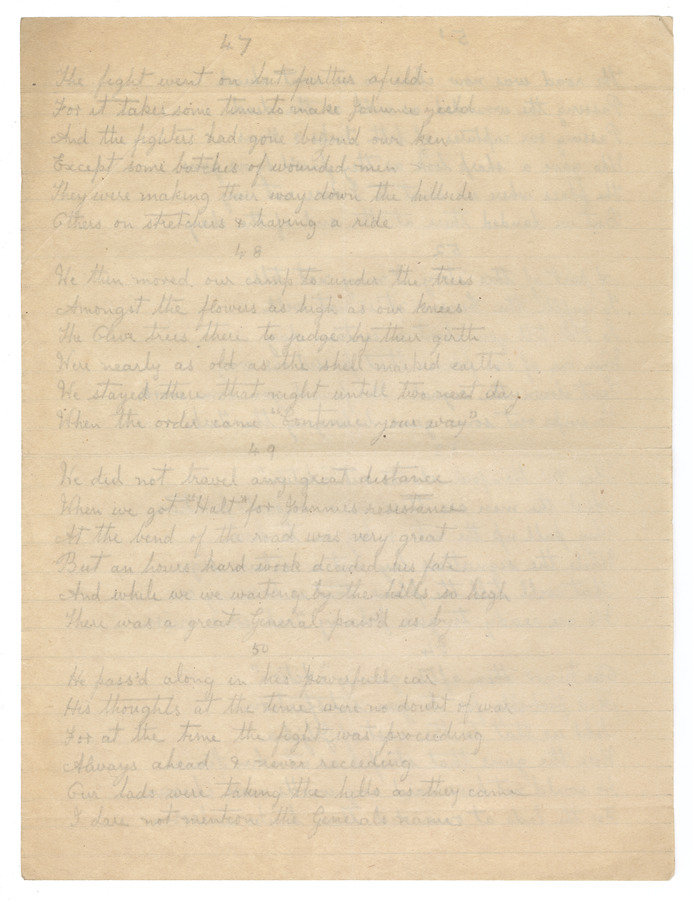 47
The fight went on but further afield
For it takes some time to make Johnnie yield
And the fighters had gone beyond our ken
Except some batches of wounded men
They were making their way down the hillside
Others on stretchers & having a ride
48
We then moved our camp to under the trees
Amongst the flowers as high as our knees
The Olive trees there to judge by their girth
Were nearly as old as the shell marked earth
We stayed there that night untill two next day
When the order came "Continue your way"
49
We did not travel any great distance
When we got "Halt" for Johnnies resistance
At the bend of the road was very great
But an hours hard work decided his fate
And while we we waiting by the hills so high
There was a great General pass'd us by
50
He pass'd along in his powerfull car
His thoughts at the time were no doubt of war
For at the time the fight was proceeding
Always ahead & never receeding
Our lads were taking the hills as they came
I dare not mention the Generals name